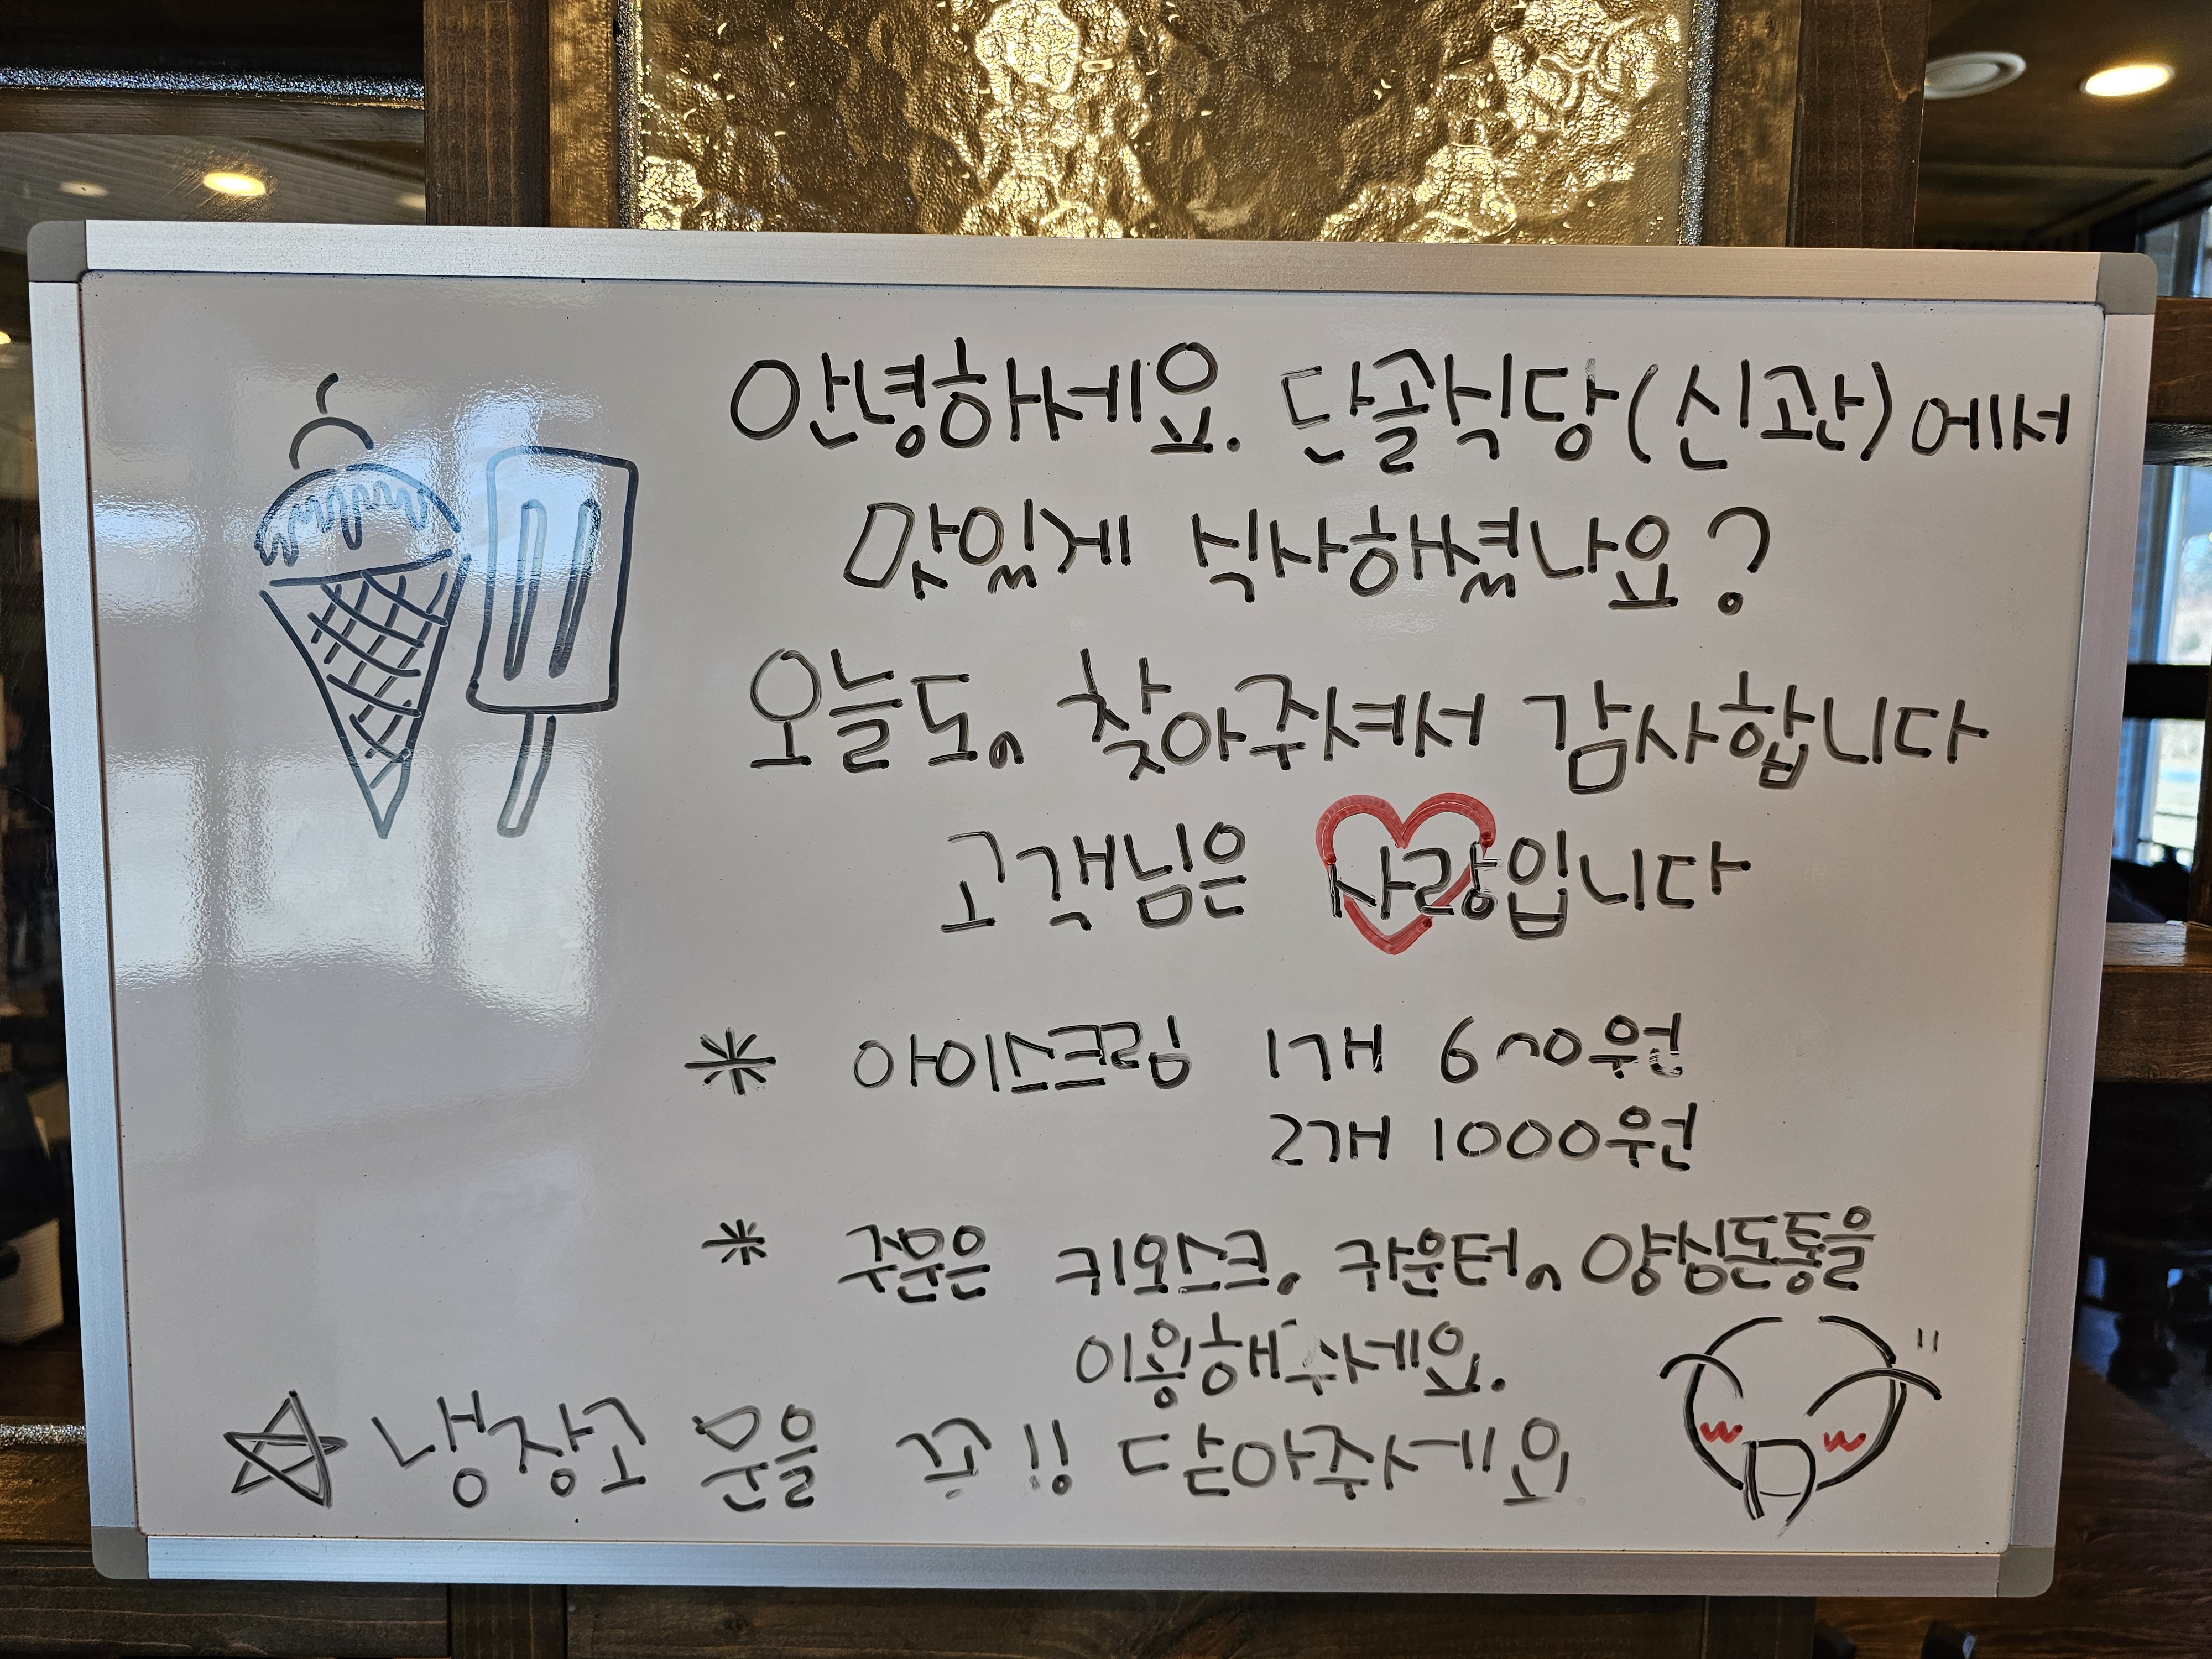 안녕하세요. 단골식당(신관)에서
맛있게 식사하셨나요?
오늘도, 찾아주셔서 감사합니다
고객님은 사랑입니다
* 아이스크림 1개 600원
2개 1000원
* 주문은 키오스크, 카운터, 양심돈통을
이용해주세요.
냉장고 문을 꼭!! 닫아주세요